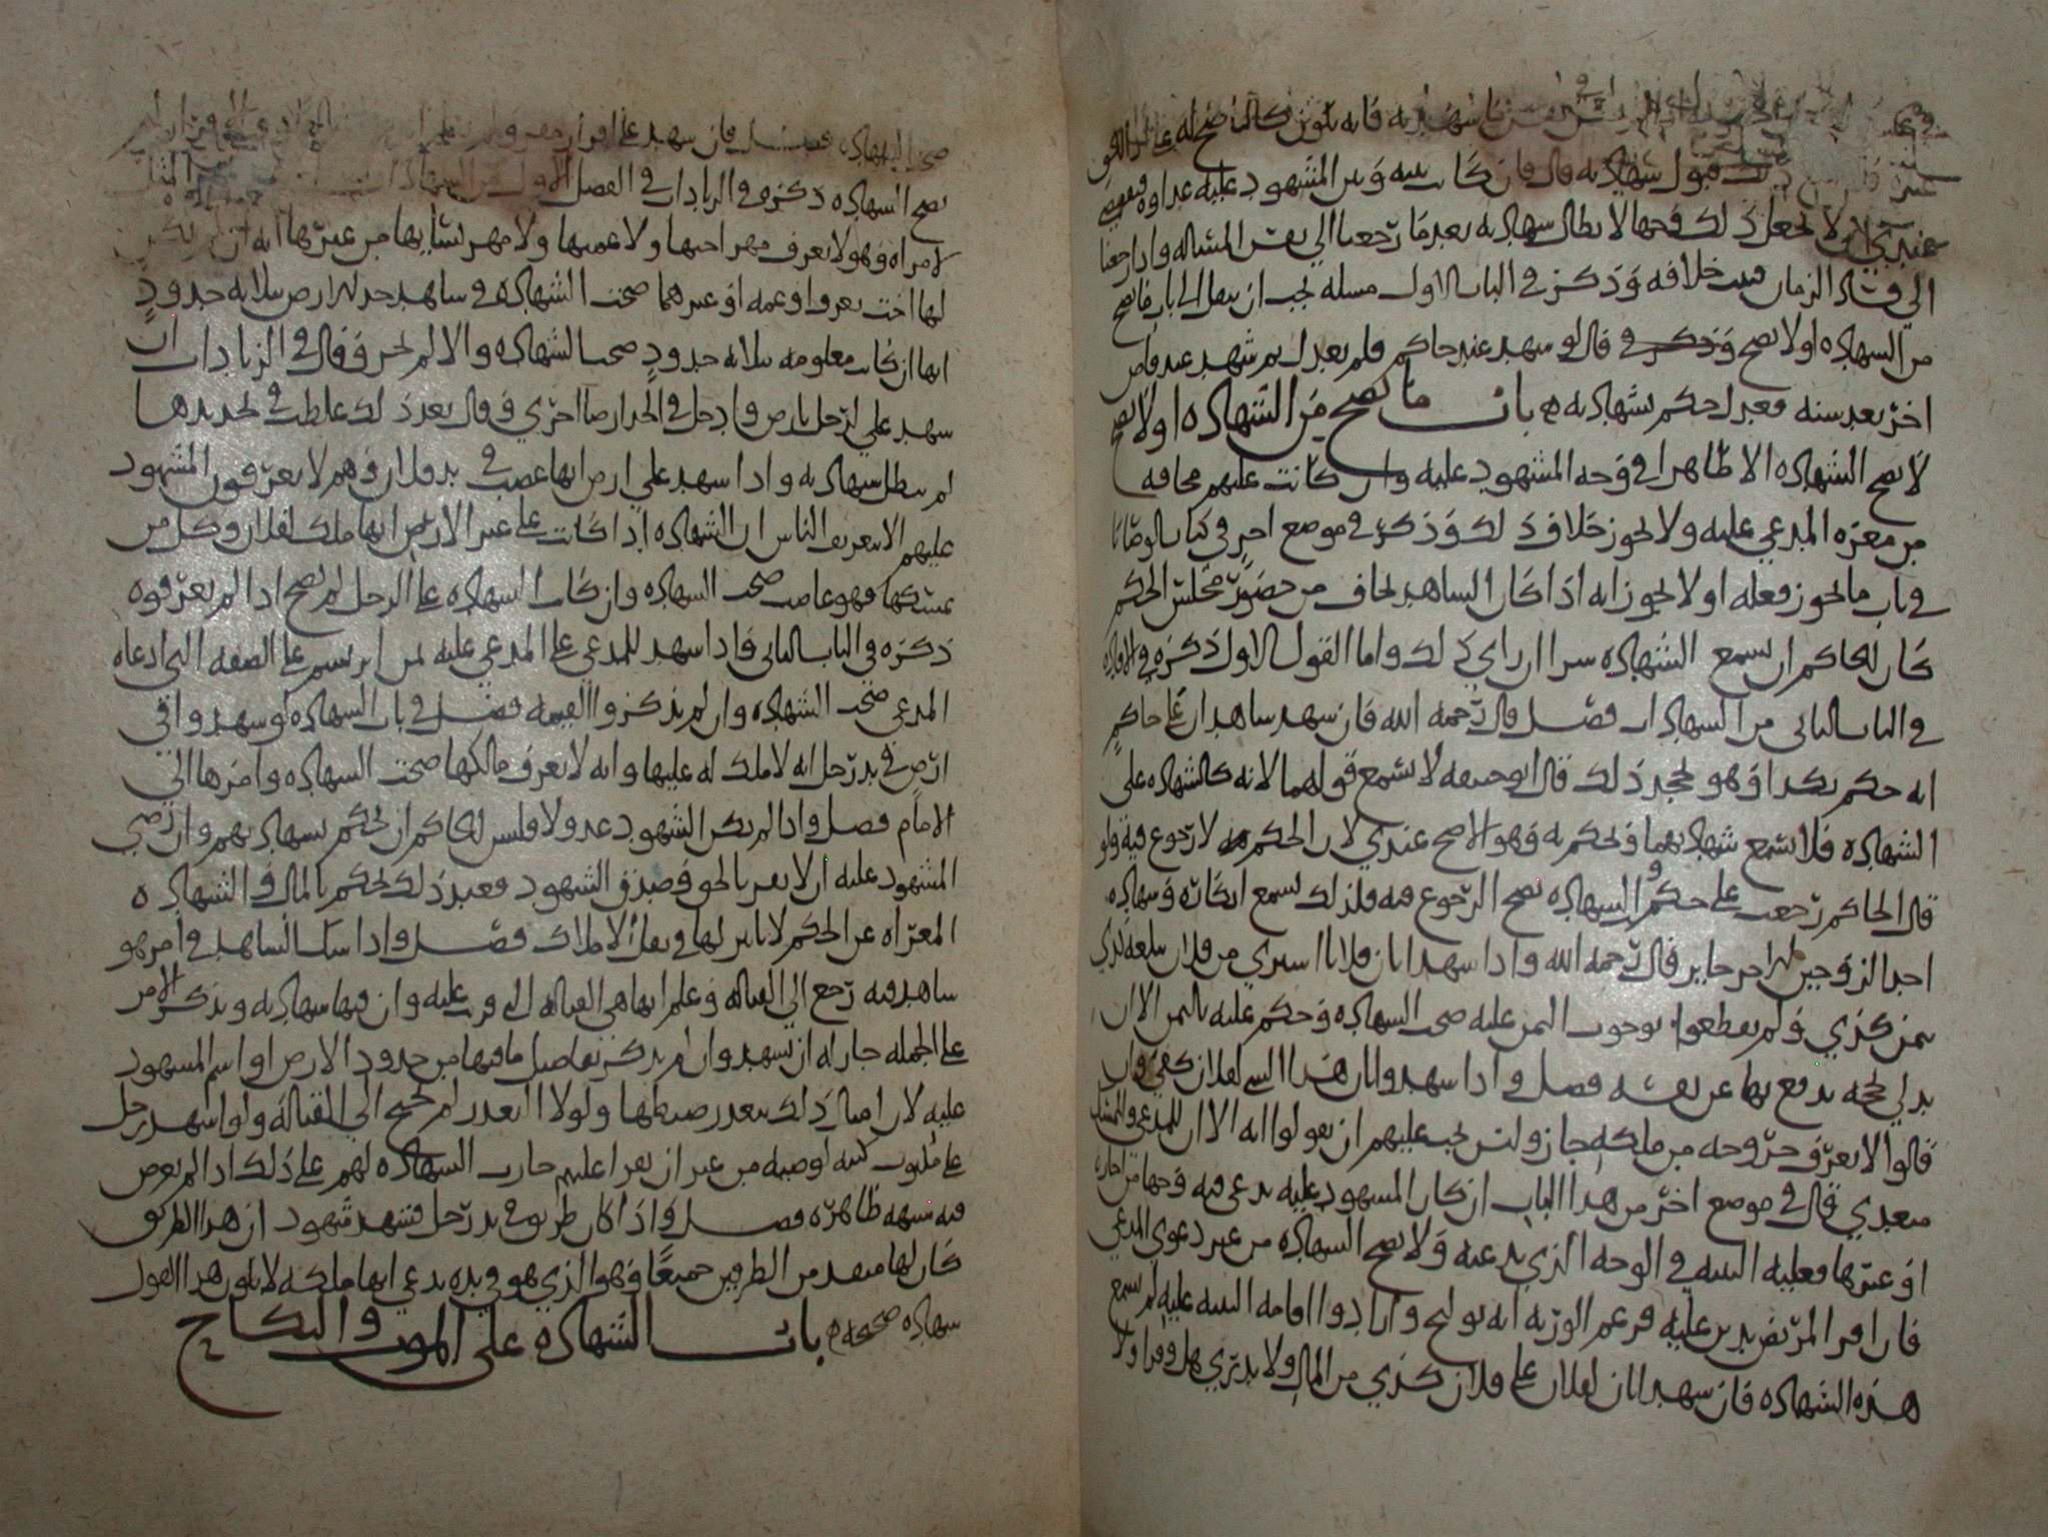 فانه يكون كالناصح له على ذا الحق
قبول شهادته قال فان كانت بينه وبين المشهود عليه عداوه
عندي ولا نجعل ذلك وجها لابطال شهادته بعد ما رجعنا الي نفس المسئاله واذا رجعنا
الي فساد الزمان خلافه وذكر في الباب الاول مسله يجب ان ينقل الي باب ما يصح
من الشهاده او لا يصح وذكر في قال لو شهد عند حاكم فلم يعدل ثم شهد عند قاض
اخر بعد سنه فعدل حكم بشهادته باب ما يصح من الشهاده او لا يصح
لا يصح الشهاده الا ظاهرا في وجه المشهود عليه وان كانت عليهم مخافه
من معره المدعي عليه ولا يجوز خلاف ذلك وذكر في موضع اخر في كتاب الوصايا
في باب ما يجوز فعله او لا يجوز انه اذا كان الشاهد يخاف من حضور مجلس الحكم
كان للحاكم ان يسمع الشهاده سرا ان راي ذلك واما القول الاول ذكره في
في الباب الثاني من الشهادات فصل قال رحمه الله فان شهد شاهدان على حاكم
انه حكم بكذا وهو يجحد ذلك قال ابو حنيفه لا يسمع قولهما لانه كالشهاده على
الشهاده فلا يسمع شهادتهما ويحكم به وهو الاصح عندي لان الحكم لا رجوع فيه ولو
قال الحاكم رجعت على حكمي والشهاده يصح الرجوع فيه فلذلك يسمع انكاره وشهاده
احد الزوجين للاخر جايز قال رحمه الله واذا شهدا بان فلانا اشتري من فلان سلعه كذي
بثمن كذي ولم يقطعوا بوجوب الثمن عليه صحت الشهاده وحكم عليه بالثمن الا ان
يدلي بحجه يدفع بها عن نفسه فصل واذا شهدوا بان هذا الشي لفلان كفي وان
قالوا لا نعرف خروجه من ملكه جاز وليس يجب عليهم ان يقولوا انه الان للمدعي
قال في موضع اخر من هذا الباب ان كان المشهود عليه يدعي فيه وجها من اجاره
او غيرها فعليه البينه في الوجه الذي يدعيه ولا يصح الشهاده من غير دعوي المدعي
فان اقر المريض بدين عليه وزعم الورثه انه توليج وارادوا اقامه البينه عليه لم يسمع
هذه الشهاده فان شهدا بان لفلان على فلان كذي من المال ولا يدري هل وفر او لا
صحت الشهاده فصل فان شهد على اقرار
يصح الشهاده ذكره في الزيادات في الفصل الاول من الشهادات
لامراه وهو لا يعرف مهر اختها ولا عمتها ولا مهر نسايها من غيرها انه ان لم يكن
لها اخت يعرف او عمه او غيرهما صحت الشهاده في شاهد حد لارض بثلاثه حدود
انها ان كانت معلومه بثلاثه حدود صحت الشهاده والا لم يجز وقال في الزيادات ان
شهد على لرجل بارض وادخل في الحد ارضا اخري وقال بعد ذلك غلطت في تحديدها
لم يبطل شهادته واذا شهد على ارض انها غصب في يد فلان وهم لا يعرفون المشهود
عليهم الا بتعريف الناس ان الشهاده اذا كانت على عين الارض انها ملك لفلان وكل من
يمسكها فهو غاصب صحت الشهاده وان كانت الشهاده على الرجل لم يصح اذا لم يعرفوه
ذكره في الباب الثاني واذا شهد للمدعي على المدعي عليه على الصفه التي ادعاه
المدعي صحت الشهاده وان لم يذكروا القيمه فصل في باب الشهاده لو شهدوا في
ارض في يد رجل انه لا ملك له عليها وانه لا يعرف مالكها صحت الشهاده وامرها الي
الامام فصل واذا لم يكن الشهود عدولا فليس للحاكم ان يحكم بشهادتهم وان رضي
المشهود عليه الا ان يقر بالحق ويصدق الشهود فعند ذلك يحكم بالمال والشهاده
المعراه عن الحكم لا تاثير لها في نقل الاملاك فصل واذا شك الشاهد في امر هو
شاهد فيه رجع الي القباله وعلم انها هي القباله التي قريت عليه وان فيها شهادته ويذكر الامر
على الجمله جاز له ان يشهد وان لم يذكر تفاصيل ما فيها من حدود الارض او اسم المشهود
عليه لان امثال ذلك يتعذر ضبطها ولولا التعذر لم يحتج الي القباله ولو اشهد رجل
على مكتوب كتبه لوصيه من غير ان يقرا عليهم جازت الشهاده لهم على ذلك اذا لم يعرض
فيه شبهه ظاهره فصل واذا كان طريق في يد رجل فشهد شهود ان هذا الطريق
كان لها منفذ من الطرفين جميعا وهو الذي هو في يده يدعي انها ملكه لا يكون هذا القول
شهاده صحيحه باب الشهاده على الموت والنكاح